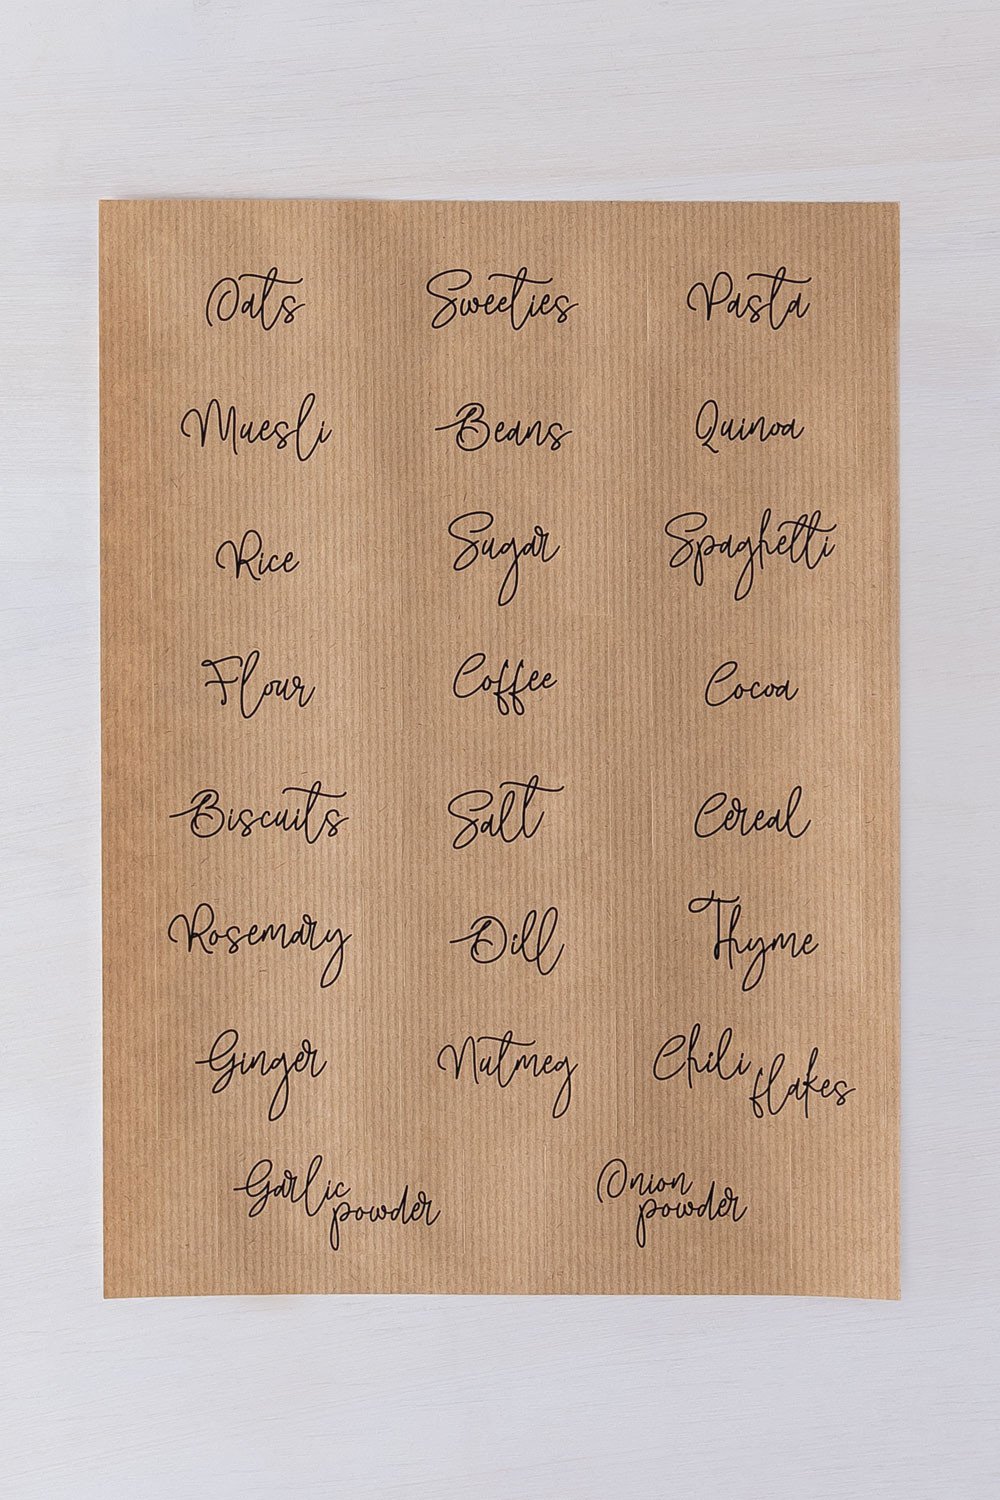 Oats Sweeties Pasta
Muesli Beans Quinoa
Rice Sugar Spaghetti
Flour Coffee Cocoa
Biscuits Salt Cereal
Rosemary Dill Thyme
Ginger Nutmeg Chili
flakes
Garlic Onion
powder powder